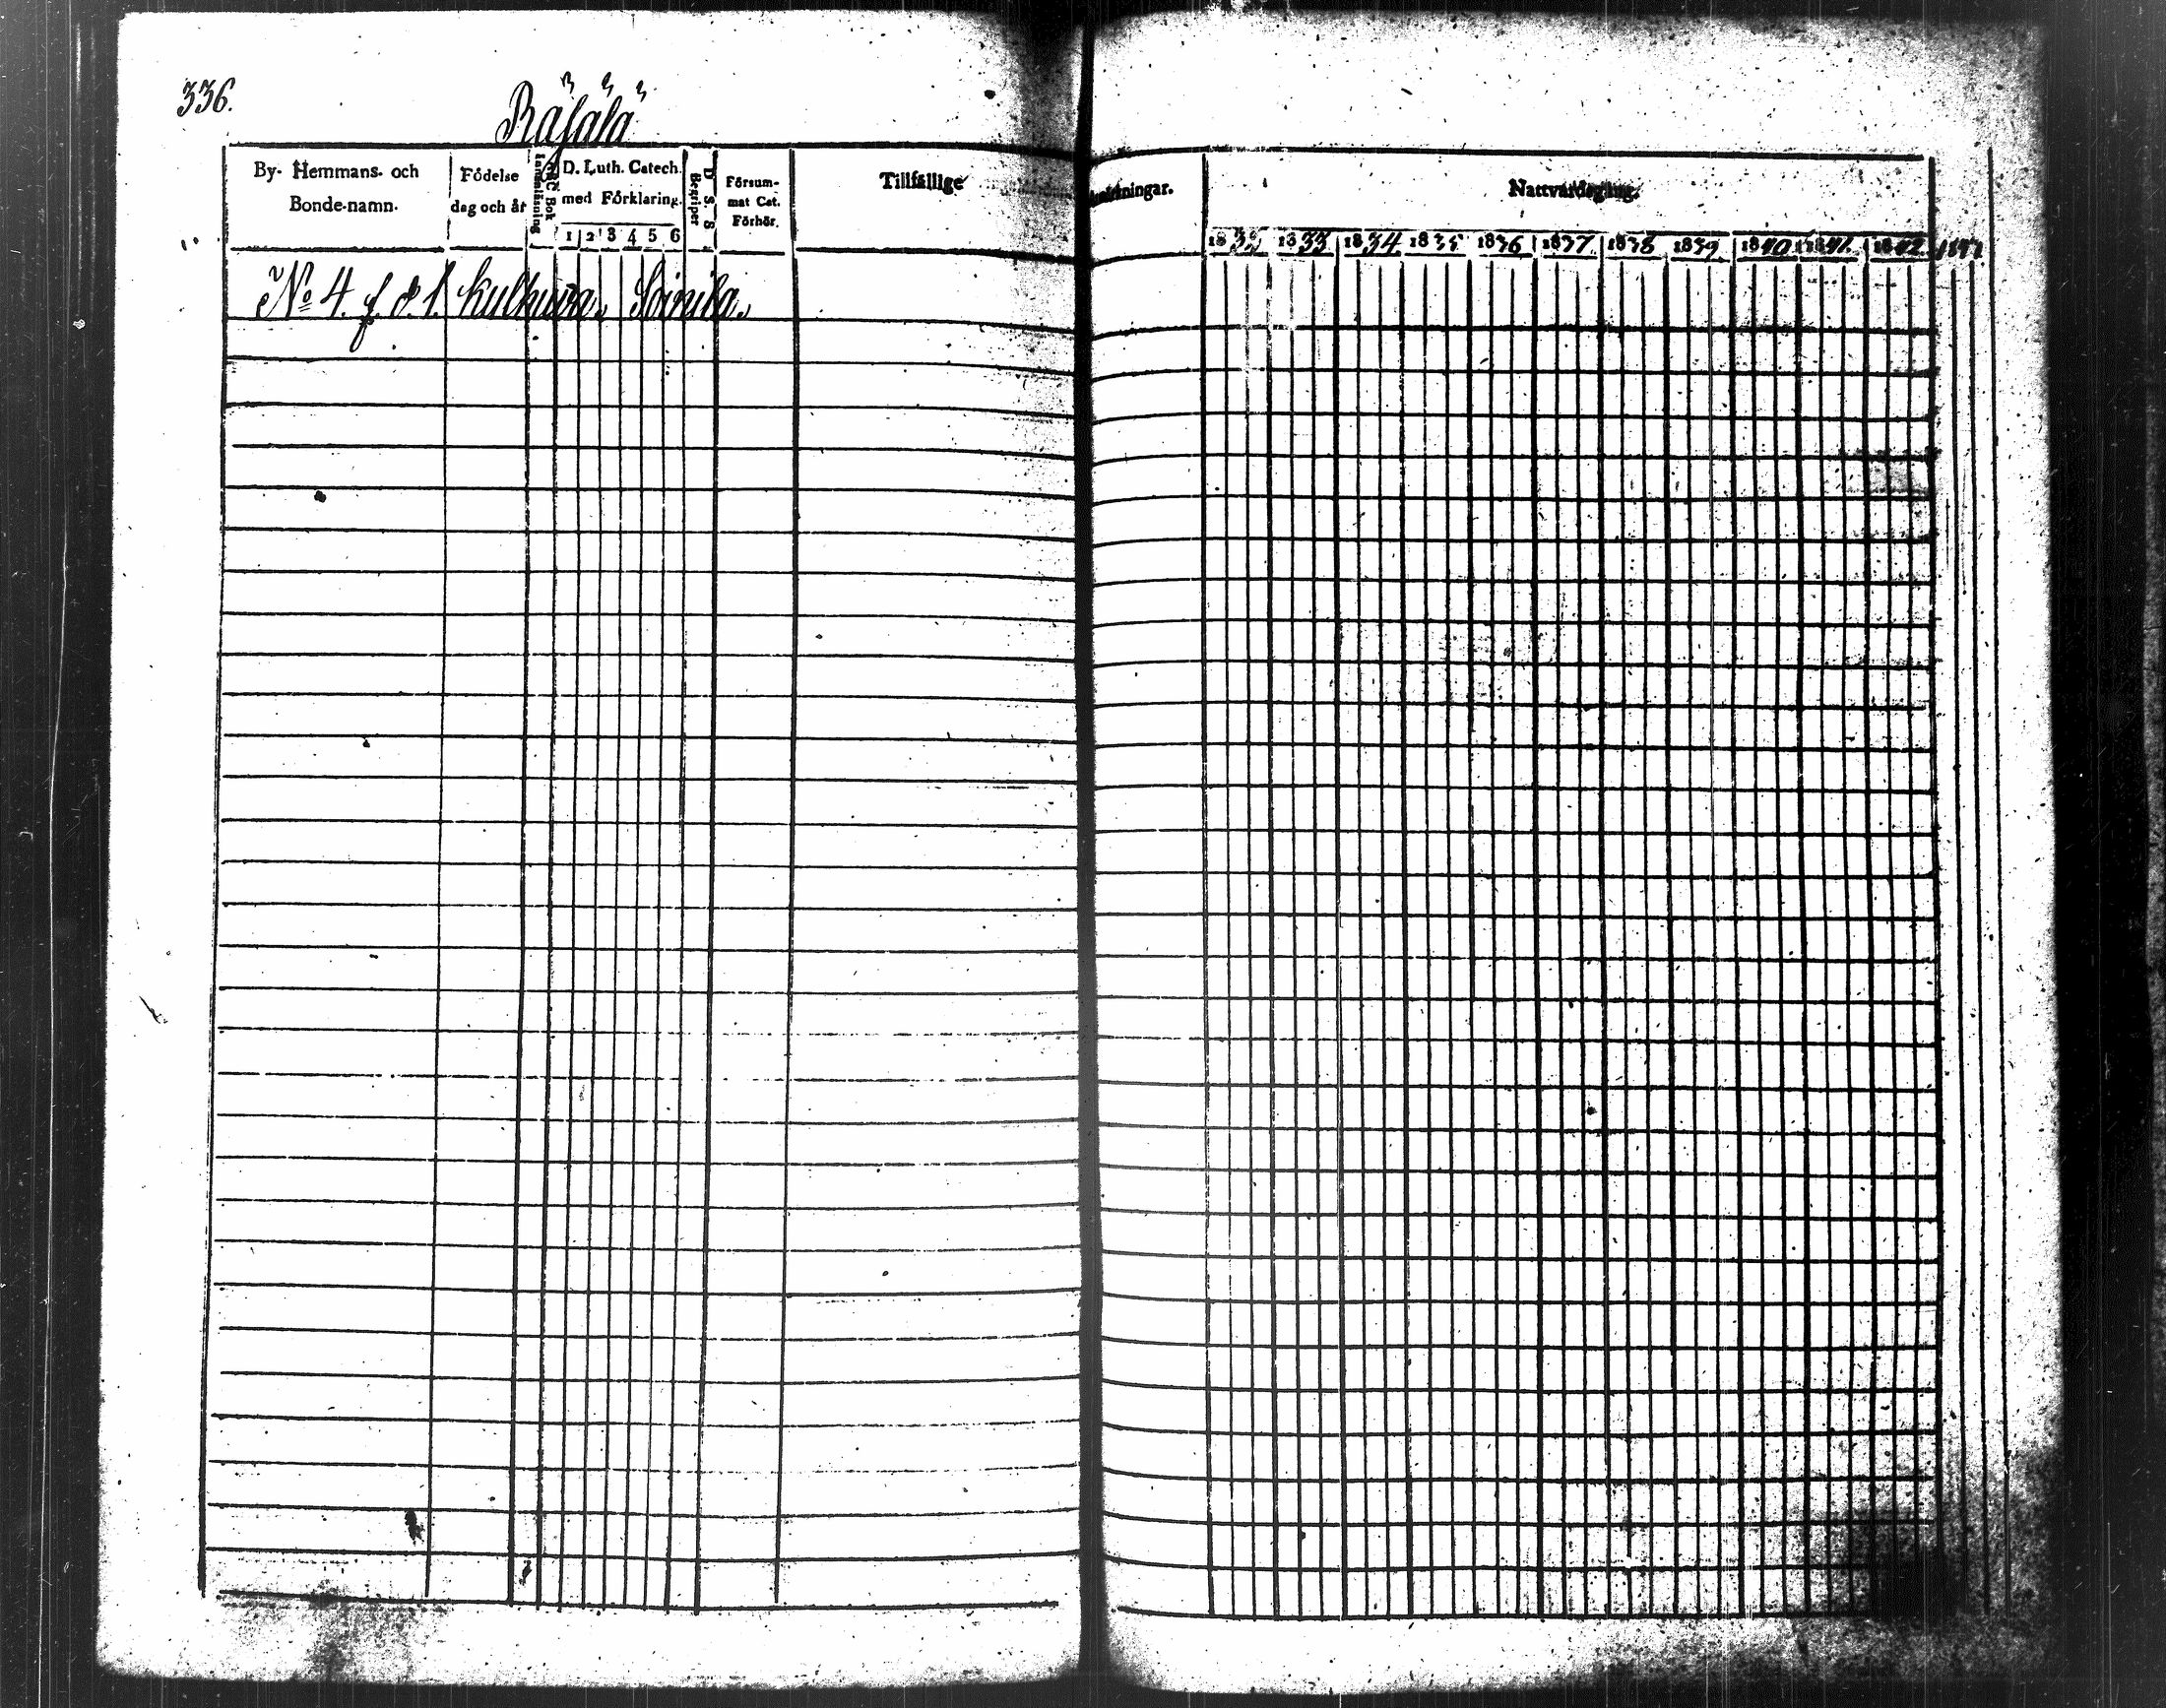 336.
Räfälä
By- Hemmans- och Bonde-namn.
Födelse dag och år
Innanläsning
ABC Bok
D. Luth. Catech. med Förklaring.
1 2 3 4 5 6
Begriper
D. S. S
Försum-mat Cat. Förhör.
Tillfällige
Nattvardsgång.
1832 1833 1834 1835 1836 1837 1838 1839 1840 1841. 1842. 1843.
No 4. f. d. 1. Kulkura. Soinila.